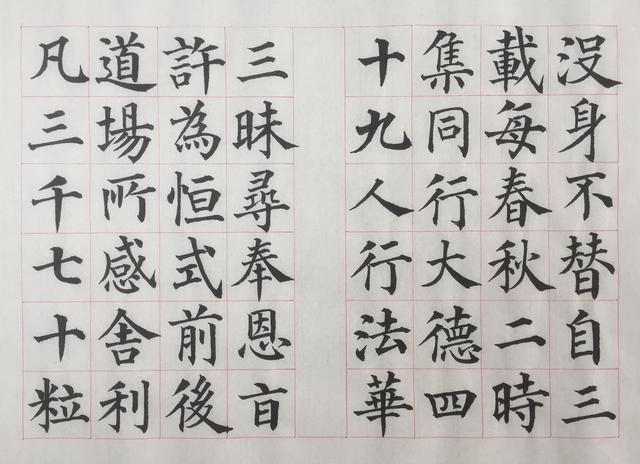 没身不替自三
載每春秋二時
集同行大德四
十九人行法華
三昧尋奉恩旨
許為恒式前後
道場所感舍利
凡三千七十粒